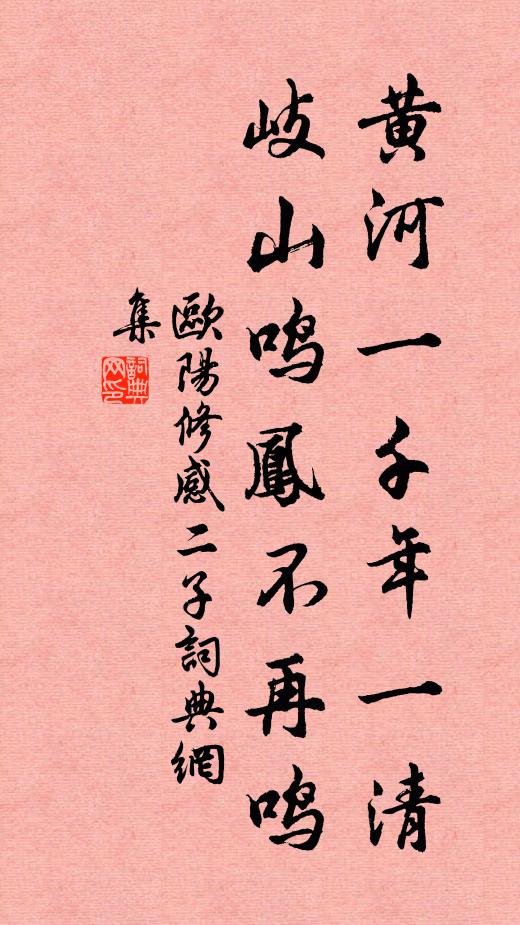 黄河一千年一清
岐山鸣鳳不再鸣
歐陽修感二子詞典網
集
詞典
网印